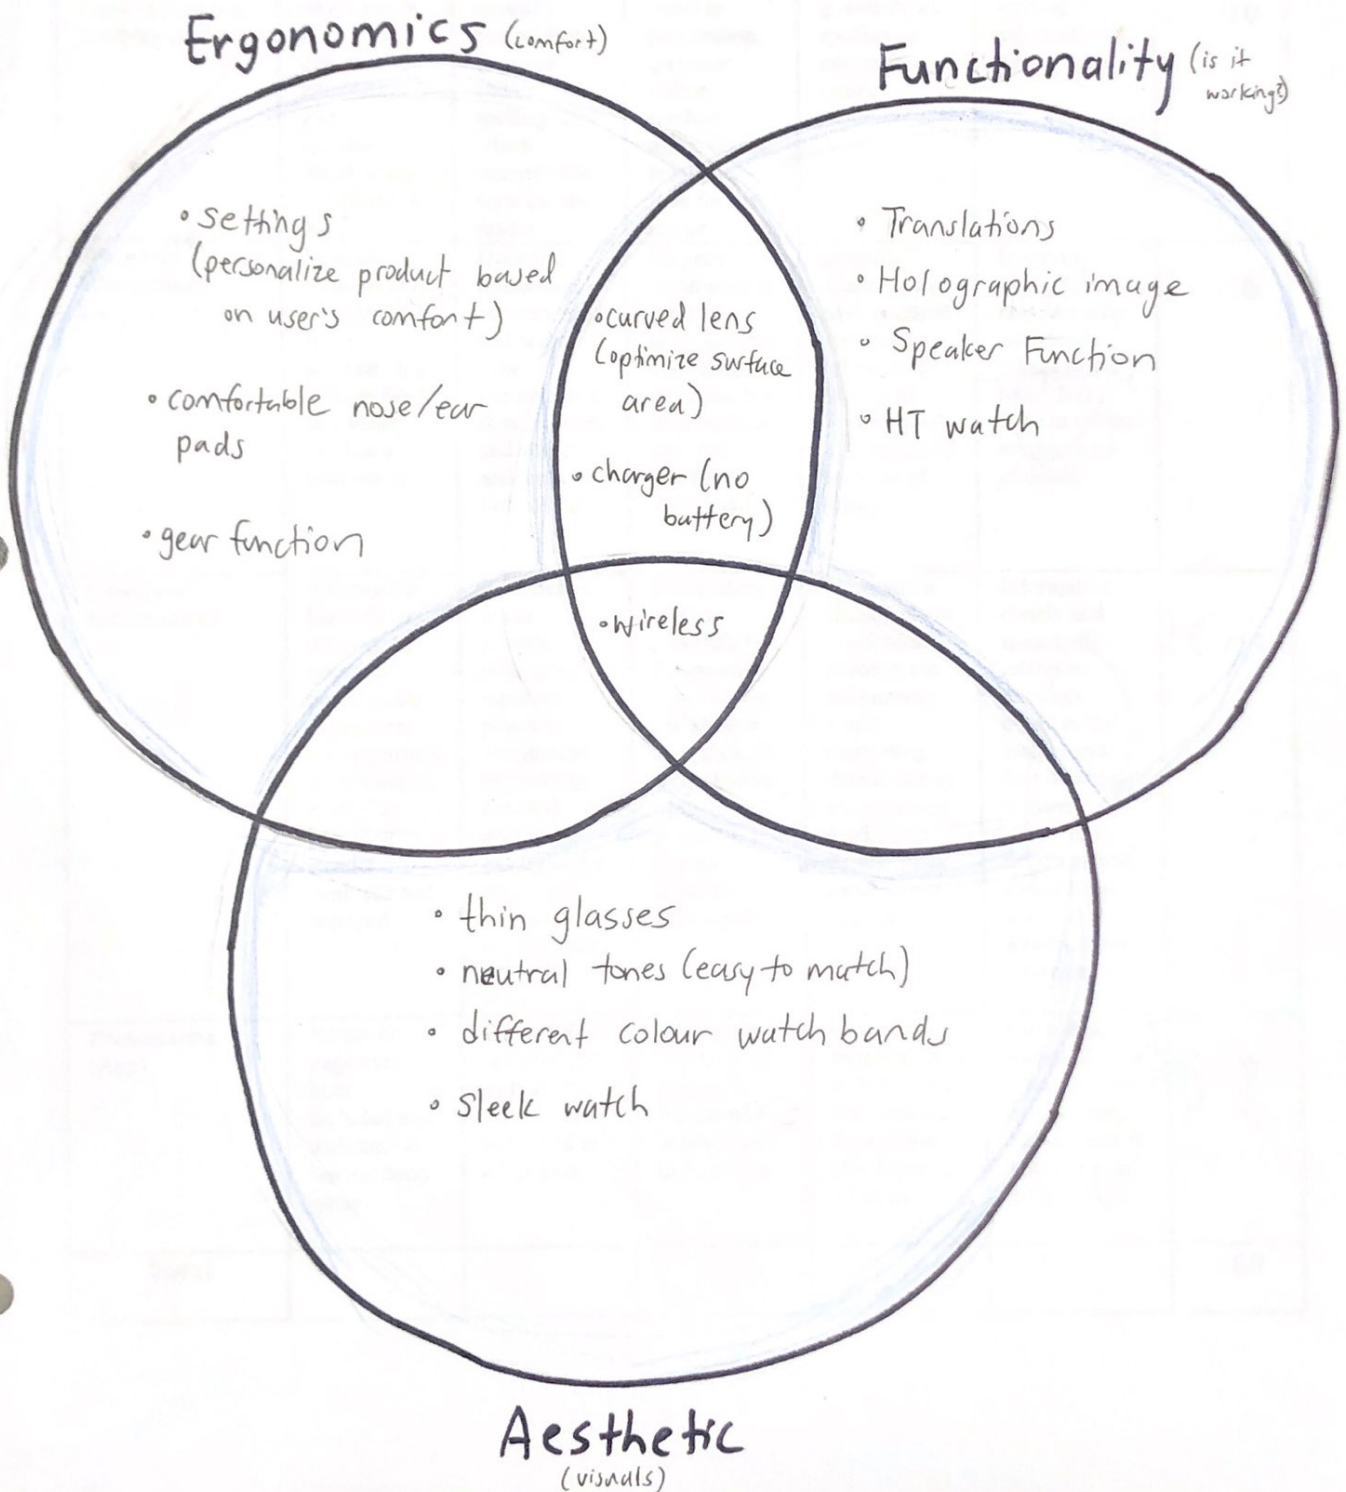 Ergonomics (comfort)
Functionality (is it
working?)
• settings
(personalize product based
on user's comfort)
• comfortable nose/ear
pads
• gear function
• curved lens
(optimize surface
area)
• charger (no
battery)
• Translations
• Holographic image
• Speaker Function
• HT watch
• wireless
• thin glasses
• neutral tones (easy to match)
• different colour watch bands
• sleek watch
Aesthetic
(visuals)